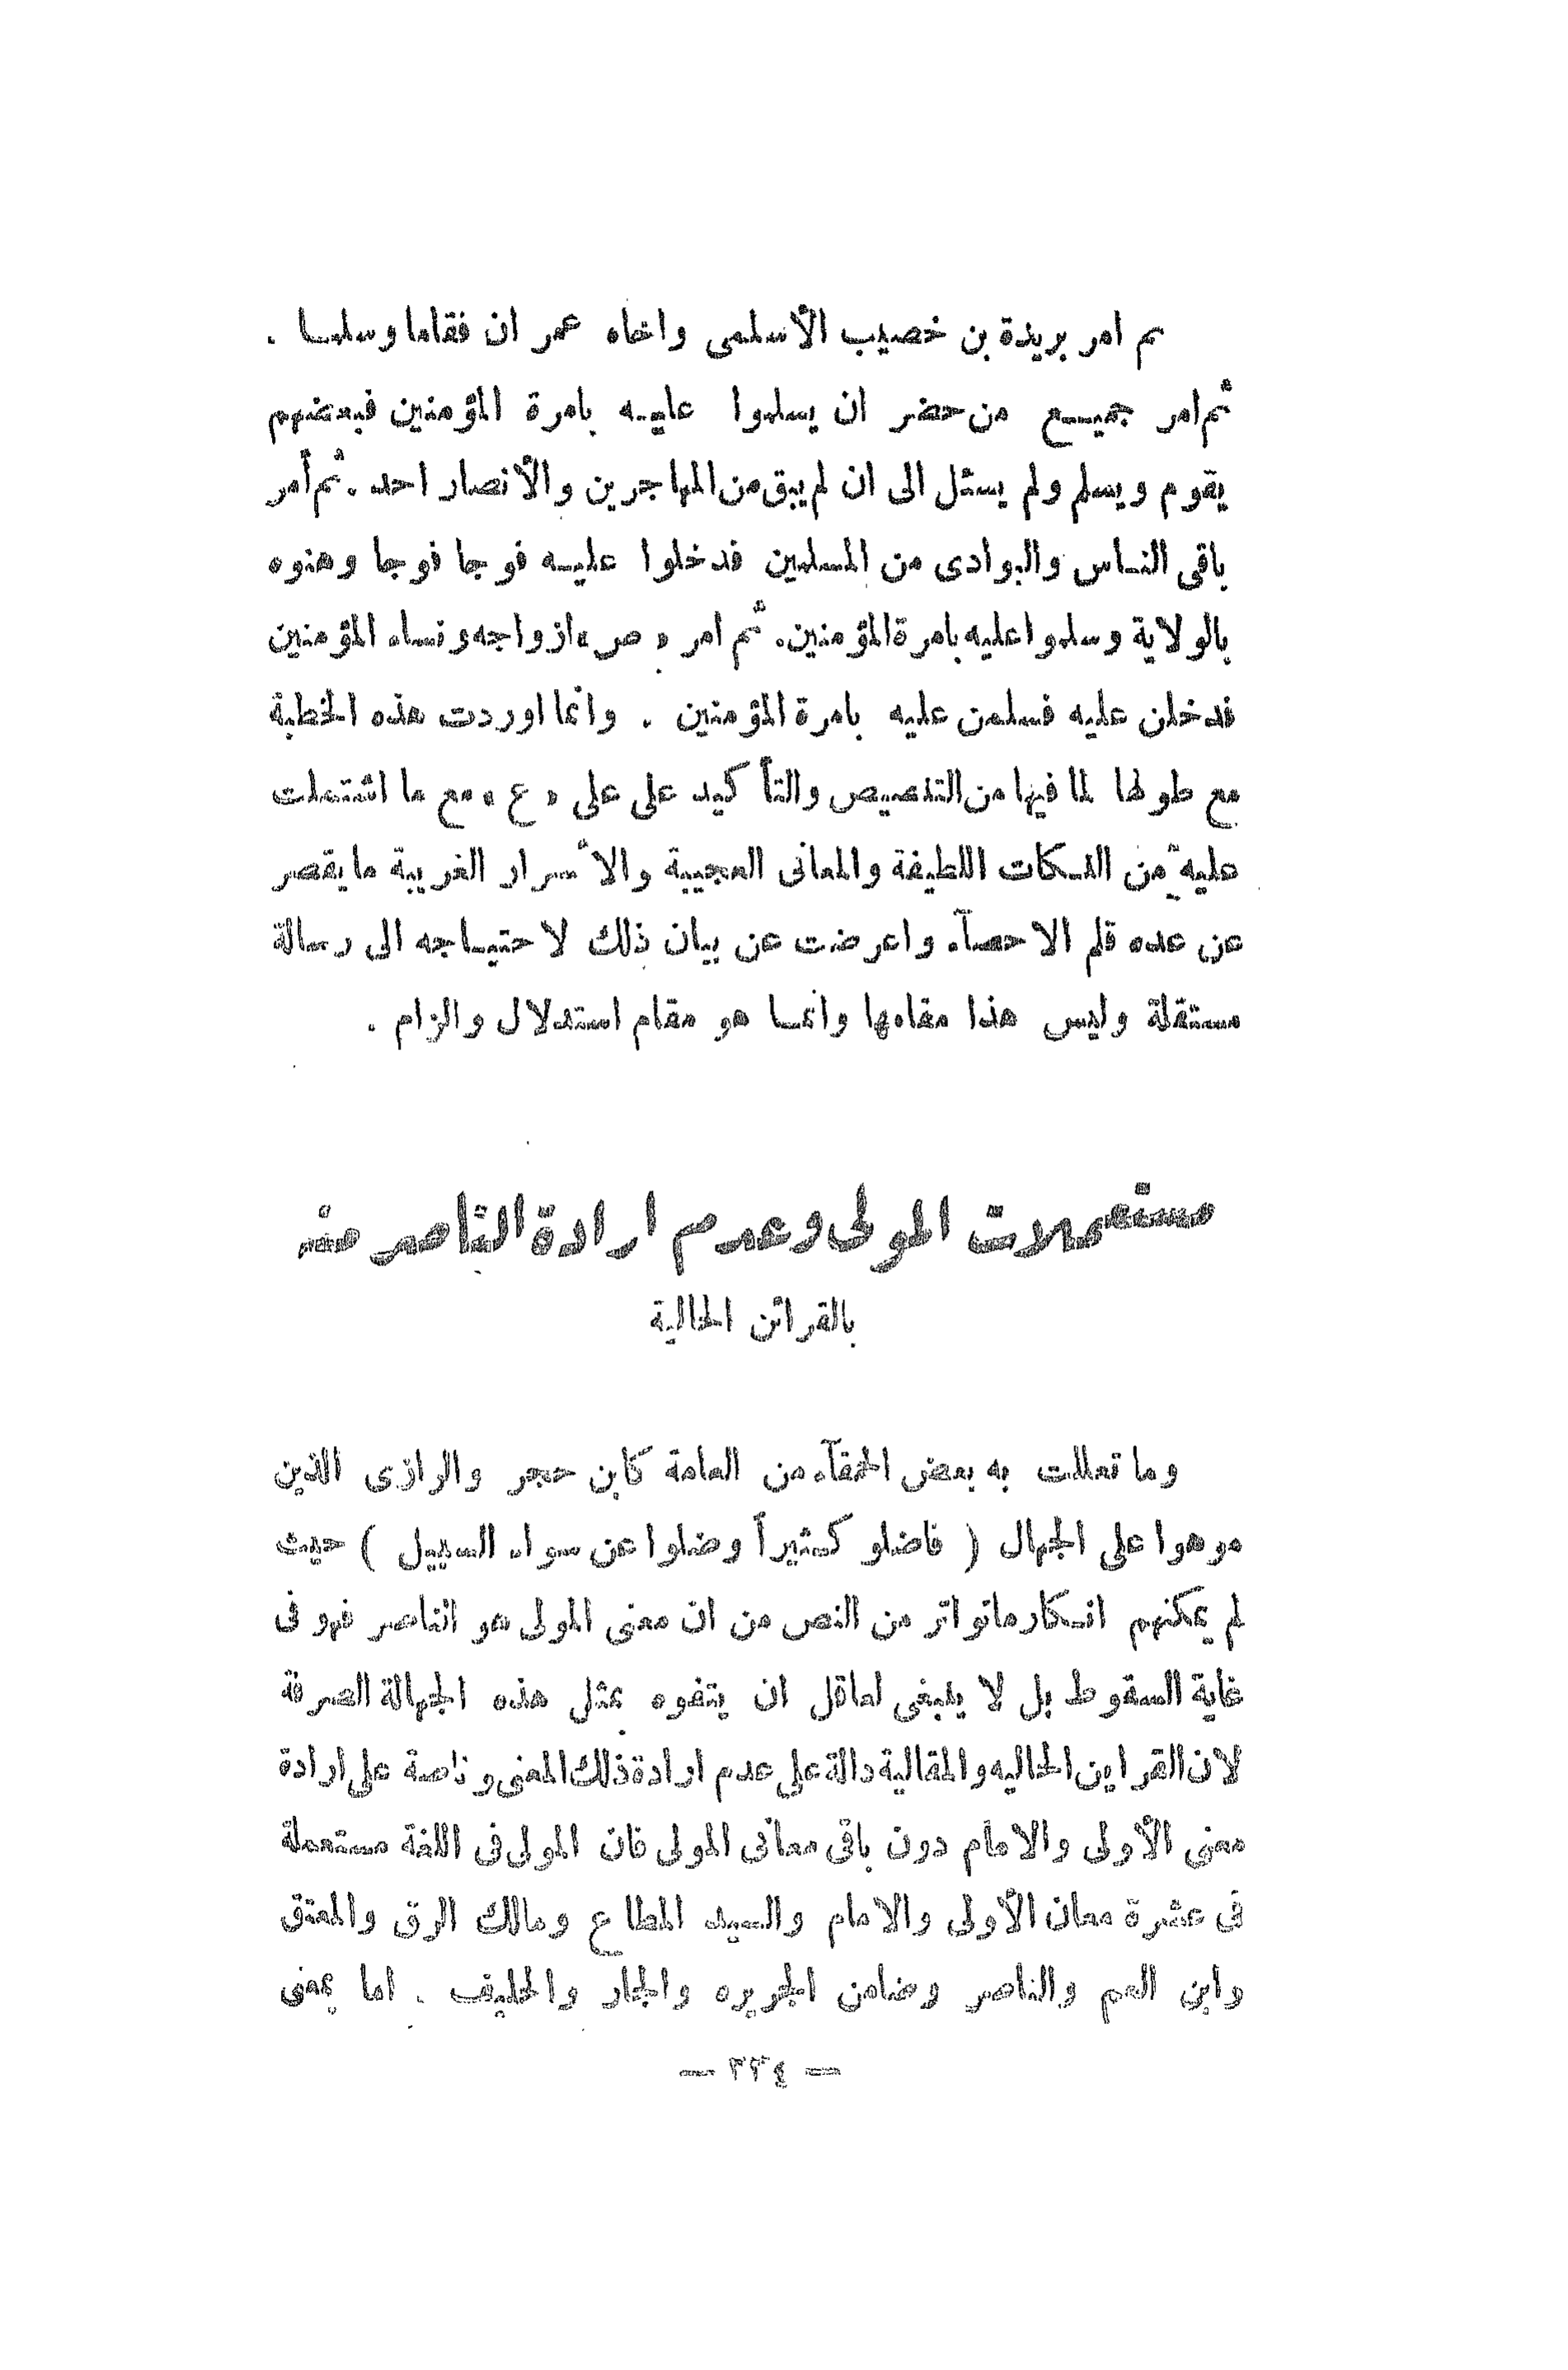 ثم امر بريدة بن خصيب الأسلمى واخاه عمر ان فقاما وسلمـا .
ثم امر جميـع من حضر ان يسلموا عليـه بامرة المؤمنين فبعضهم
يقوم ويسلم ولم يسئل الى ان لم يبق من المهاجرين والأنصار احد . ثم أمر
باقى النـاس والبوادى من المسلمين فدخلوا عليـه فوجا فوجا وهنوه
بالولاية وسلموا عليه بامرة المؤمنين. ثم امر « ص » ازواجه ونساء المؤمنين
فدخلن عليه فسلمن عليه بامرة المؤمنين . وانما اوردت هذه الخطبة
مع طولها لما فيها من التنصيص والتأكيد على على « ع » مع ما اشتملت
عليه من النـكات اللطيفة والمعانى العجيبة والأسرار الغريبة ما يقصر
عن عده قلم الاحصآء واعرضت عن بيان ذلك لاحتيـاجه الى رسالة
مستقلة وليس هذا مقامها وانمـا هو مقام استدلال والزام .
مستعملات المولى وعدم ارادة الناصر منه
بالقرائن الحالية
وما تعللت به بعض الحمقآء من العامة كابن حجر والرازى الذين
موهوا على الجهال ( فاضلو كـثيراً وضلوا عن سواء السبيل ) حيث
لم يمكنهم انـكار ماتواتر من النص من ان معنى المولى هو الناصر فهو فى
غاية السقوط بل لا ينبغى لعاقل ان يتفوه بمثل هذه الجهالة الصرفة
لان القراين الحاليه والمقالية دالة على عدم ارادة ذلك المعنى وناصة على ارادة
معنى الأولى والامام دون باقى معانى المولى فان المولى فى اللغة مستعملة
فى عشرة معان الأولى والامام والسيد المطاع ومالك الرق والمعتق
وابن العم والناصر وضامن الجريره والجار والحليف . اما بمعنى
— ٢٢٤ —